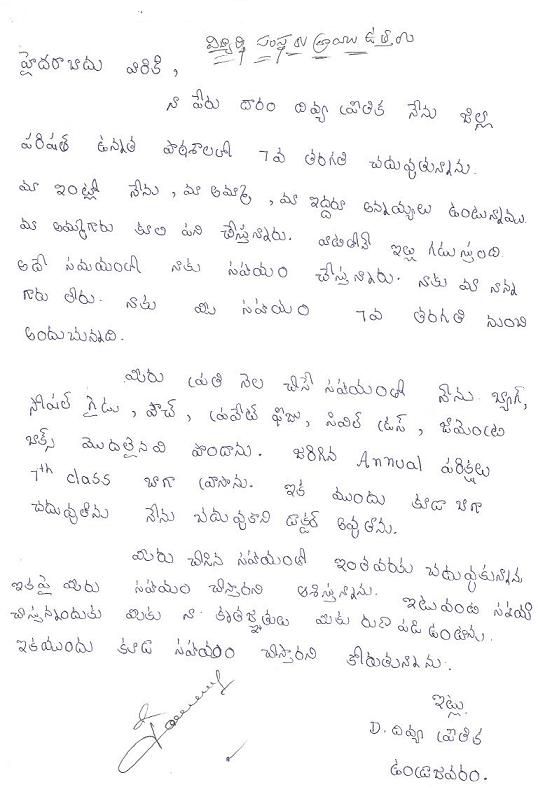 విద్యార్థి సంస్థ కు వ్రాయు ఉత్తరం
హైదరాబాదు వారికి,
నా పేరు దారం దివ్య మౌతిక నేను జిల్లా
పరిషత్ ఉన్నత పాఠశాలలో 7వ తరగతి చదువుతున్నాను.
మా ఇంట్లో నేను, మా అమ్మ, మా ఇద్దరూ అన్నయ్యలు ఉంటున్నాము.
మా అమ్మగారు కూలి పని చేస్తున్నారు. వాటితోనే ఇల్లు గడుస్తుంది.
అదే సమయంలో నాకు సహాయం చేస్తున్నారు. నాకు మా నాన్న
గారు లేరు. నాకు మీ సహాయం 7వ తరగతి నుంచి
అందుచున్నది.
మీరు ప్రతి నెల చేసే సహాయంతో నేను బ్యాగ్,
సోషల్ గైడు, పౌచ్, ప్రవేట్ ఫీజు, సివిల్ డ్రస్, జామెంట్రి
బాక్స్ మొదలైనవి పొందాను. జరిగిన Annual పరీక్షలు
7th class బాగా వ్రాసాను. ఇక ముందు కూడా బాగా
చదువుతాను నేను చదువుకొని డాక్టర్ అవుతాను.
మీరు చేసిన సహాయంతో ఇంతవరకు చదువుకున్నాను
ఇకపై మీరు సహాయం చేస్తారని ఆశిస్తున్నాను. ఇటువంటి సహాయం
చేస్తున్నందుకు మీకు నా కృతజ్ఞతలు మీకు రుణపడి ఉంటాను.
ఇకముందు కూడా సహాయం చేస్తారని కోరుతున్నాను.
ఇట్లు
D. దివ్య మౌతిక
ఉండ్రాజవరం.